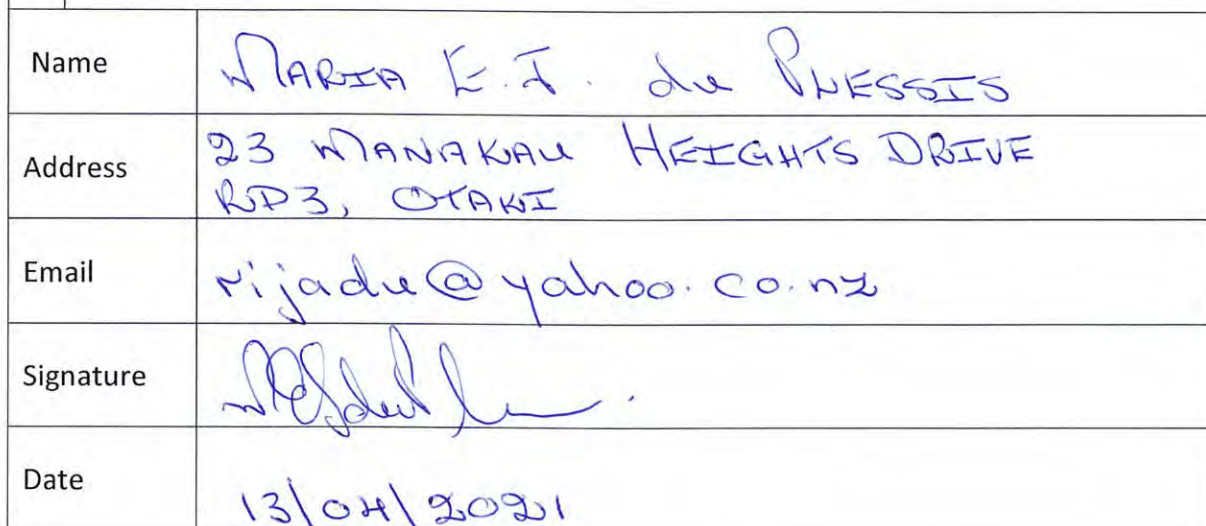 Name
MARIA E.J. du PLESSIS
Address
23 MANAKAU HEIGHTS DRIVE
RD3, OTAKI
Email
rijadu@yahoo.co.nz
Signature
Date
13/04/2021